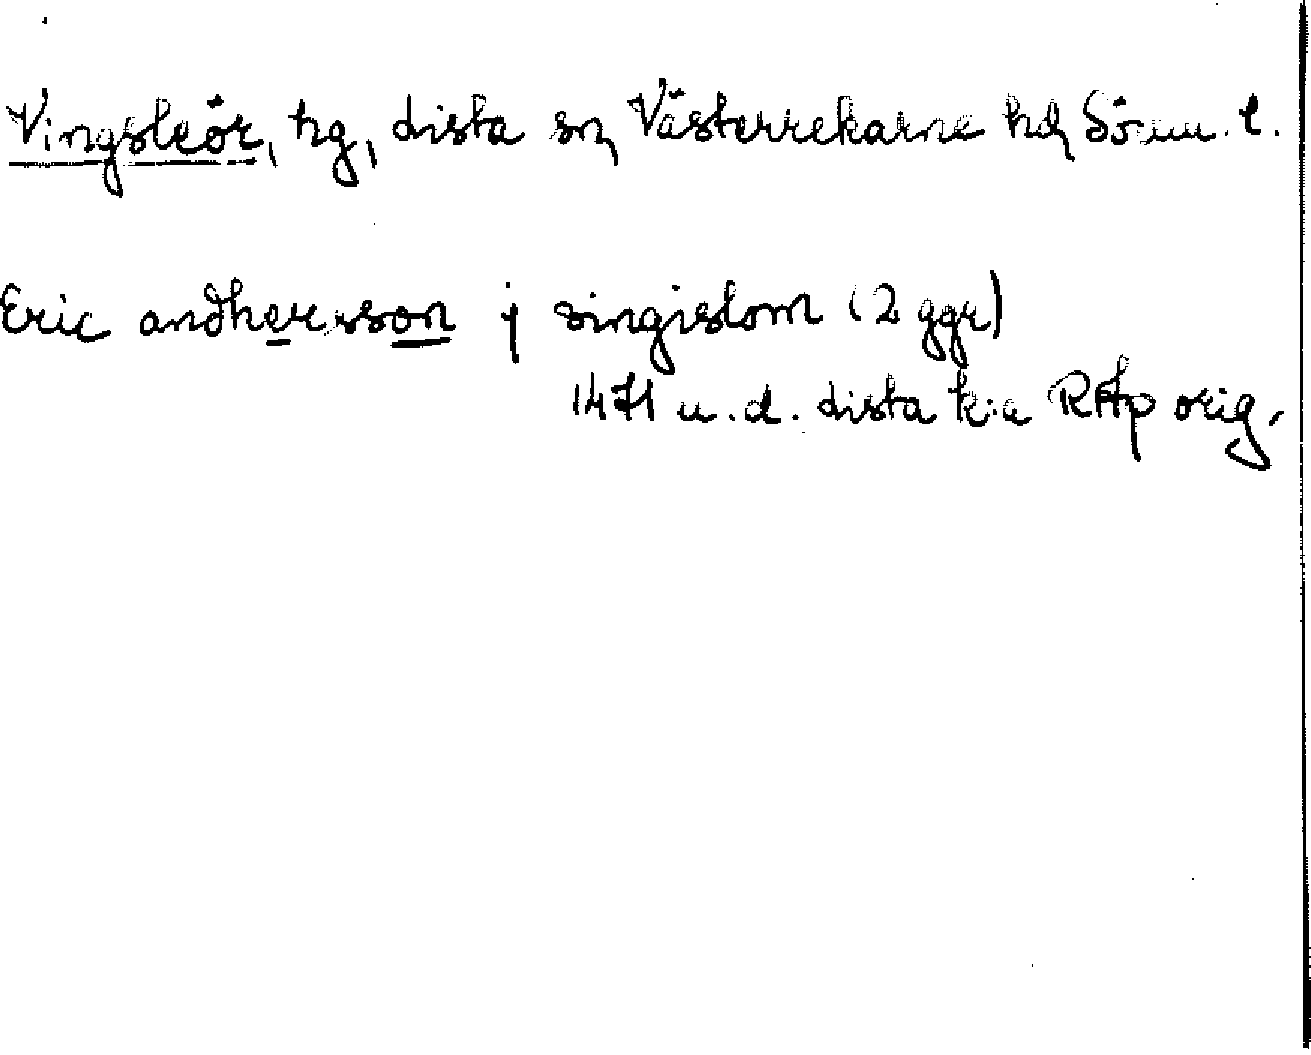 Vingsleör, hg, Lista sn, Västerrekarne hd, Sörm. l.
Eric andhersson j vingislom (2 ggr)
1471 u.d. Lista k:a RAp orig.